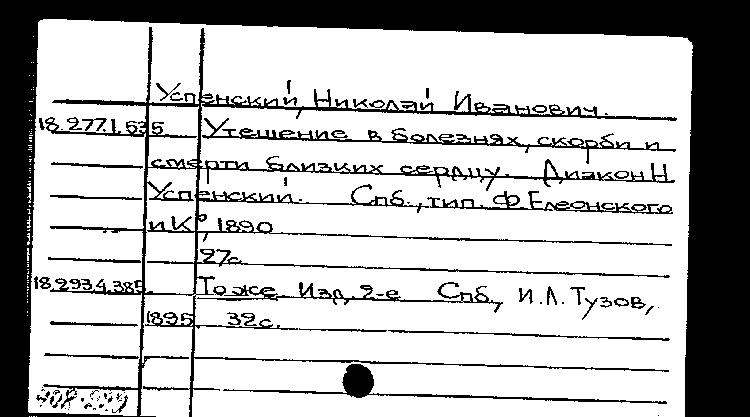 Успенский, Николай Иванович.
18.277.1.535 Утешение в болезнях, скорби и
смерти близких сердцу. Диакон Н
Успенский. Спб., тип. Ф. Елеонского
и К°, 1890
27с.
18.293.4.385. То же. Изд. 2-е Спб., И.Л. Тузов,
1895. 32с.